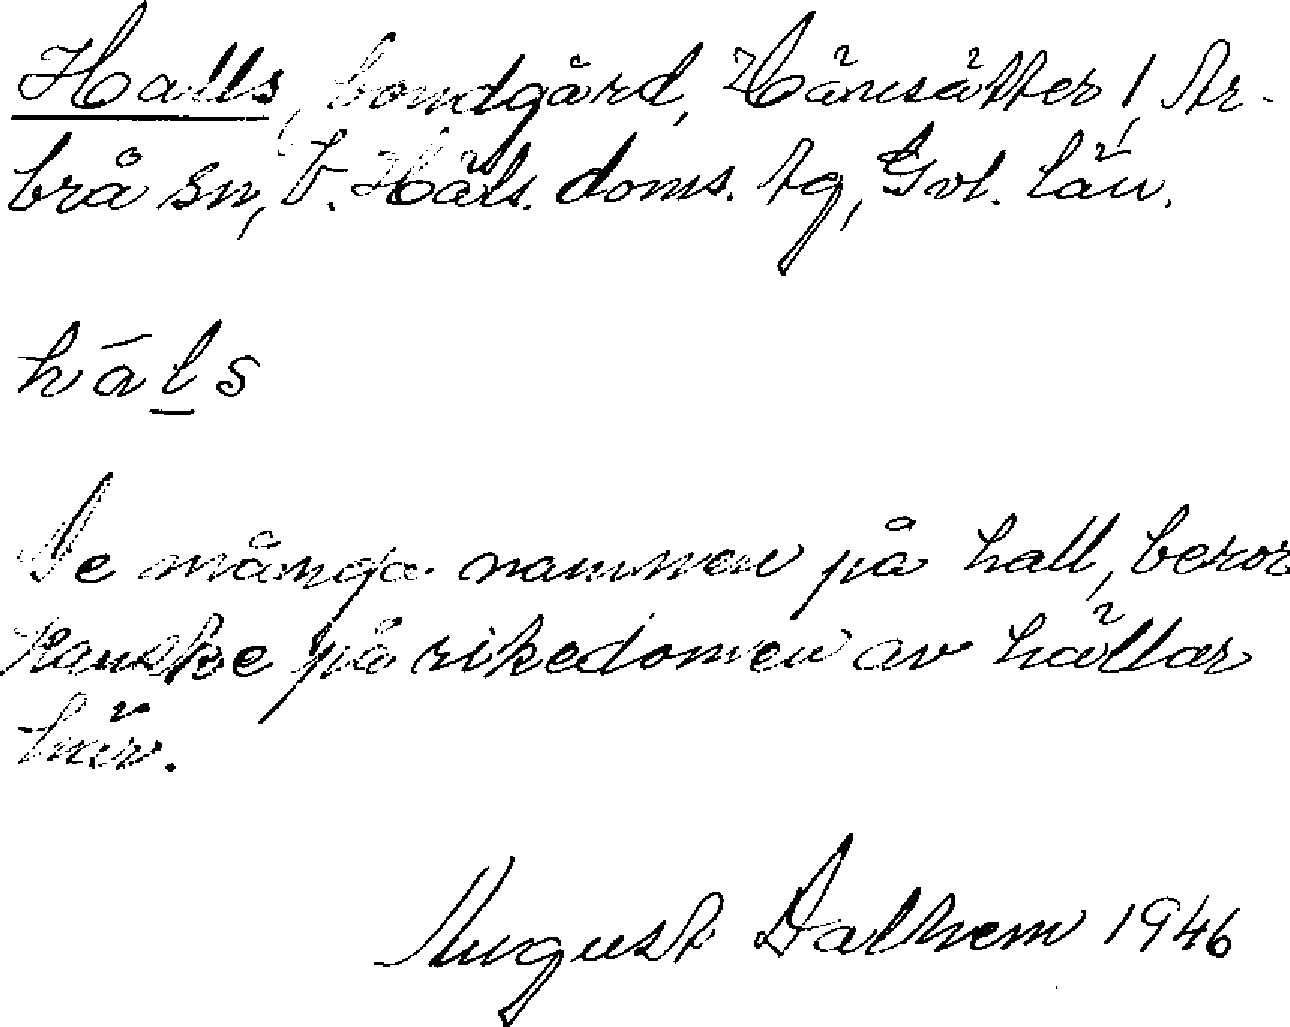 Halls, bondgård, Hänsätter, Ar-
brå sn, V. Häls. doms. tg, Gvl. län.
háls
De många namnen på hall, beror
kanske på rikedomen av hällar
här.
August Dalhem 1946